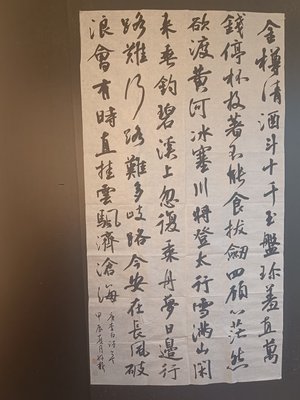 金樽清酒斗十千玉盤珍羞直萬
錢停杯投著不能食拔劍四顧心茫然
欲渡黃河冰塞川將登太行雪滿山閑
來垂釣碧溪上忽復乘舟夢日邊行
路難行路難多岐路今安在長風破
浪會有時直挂雲颿濟滄海
唐李白詩
甲辰夏月